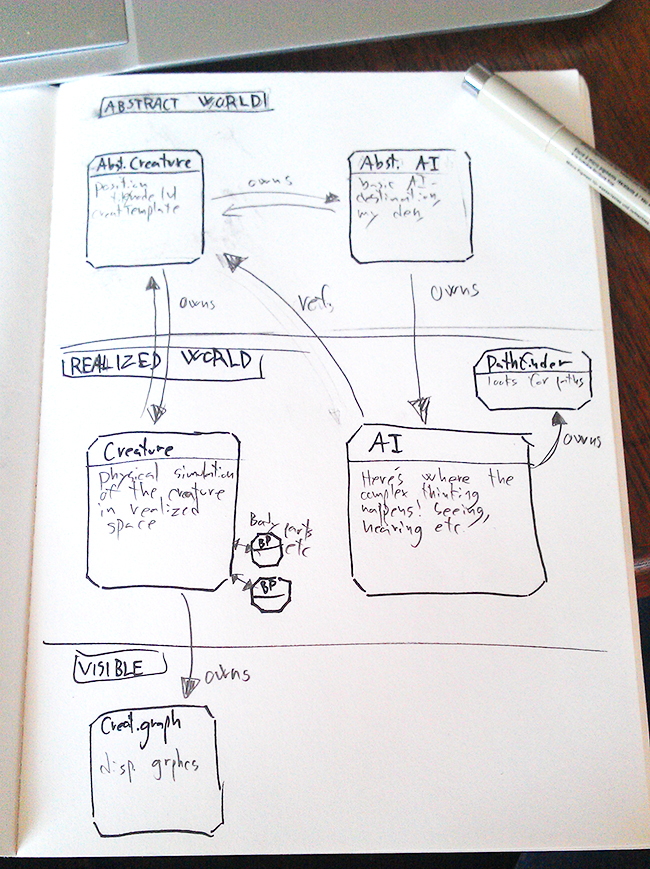 ABSTRACT WORLD
Abst. Creature
position
creatTemplate
owns
Abst. AI
basic AI -
destination,
my den,
owns
owns
REALIZED WORLD
Pathfinder
looks for paths
owns
Creature
physical simulation
of the creature
in realized
space
Body parts
etc
BP
BP
AI
Here's where the
complex thinking
happens! Seeing,
hearing etc.
VISIBLE
owns
Creat.graph
disp. grphcs